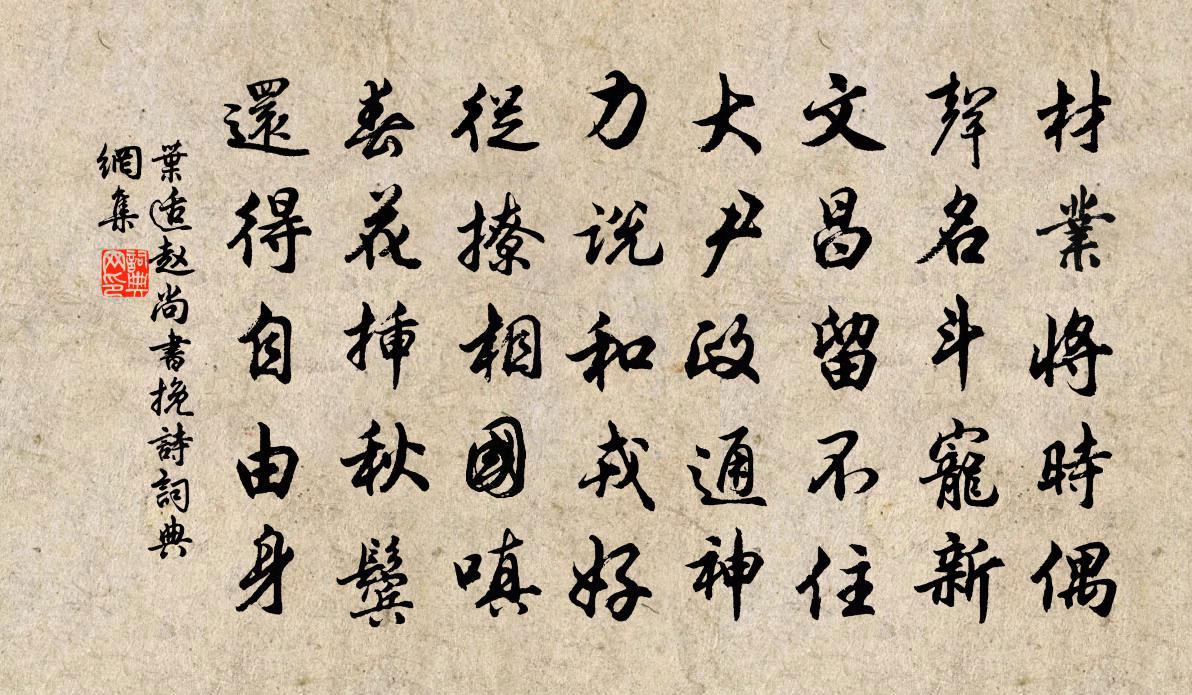 材業將時偶
聲名斗寵新
文昌留不住
大尹政通神
力說和戎好
從撩相國嗔
春花揷秋鬢
還得自由身
葉适赵尚書挽詩詞典
網集
詞典
网印